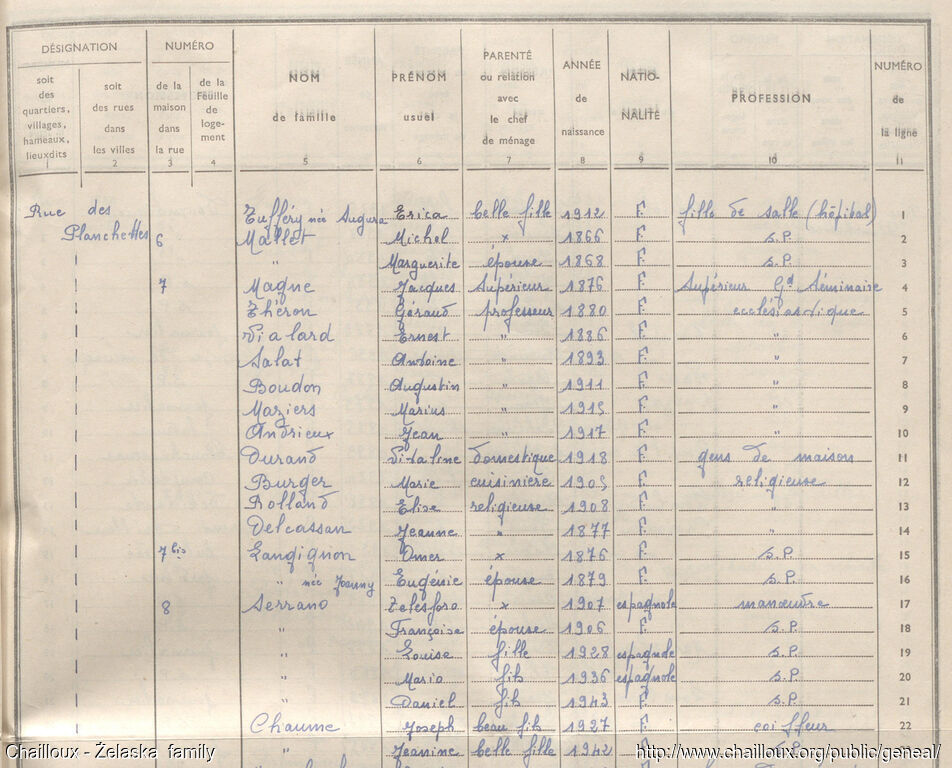 DÉSIGNATION NUMÉRO
soit des quartiers, villages, hameaux, lieuxdits
soit des rues dans les villes
de la maison dans la rue
de la Feuille de loge-ment
NOM de famille
PRÉNOM usuel
PARENTÉ ou relation avec le chef de ménage
ANNÉE de naissance
NATIO-NALITÉ
PROFESSION
NUMÉRO de la ligne
1 2 3 4 5 6 7 8 9 10 11
Rue des Tufféry née Augura Erica belle fille 1912 F. fille de salle (hôpital) 1
Planchettes 6 Mallet Michel x 1866 F. s.P. 2
" Marguerite épouse 1868 F. s.P. 3
7 Magne Jacques Supérieur 1876 F. Supérieur Gd Séminaire 4
Théron Géraud professeur 1880 F. ecclésiastique 5
Vialard Ernest " 1886 F. " 6
Salat Antoine " 1893 F. " 7
Boudon Augustin " 1911 F. " 8
Maziers Marius " 1915 F. " 9
Andrieux Jean " 1917 F. " 10
Durand Vitaline domestique 1918 F. gens de maison 11
Burger Marie cuisinière 1905 F. religieuse 12
Rolland Elise religieuse 1908 F. " 13
Delcassan Jeanne " 1877 F. " 14
7bis Langignon Omer x 1876 F. s.P. 15
" née Joanny Eugénie épouse 1879 F. s.P. 16
8 Serrano Telesforo x 1907 espagnole manœuvre 17
" Françoise épouse 1906 F. s.P. 18
" Louise fille 1928 espagnole s.P. 19
" Mario fils 1936 espagnole s.P. 20
" Daniel fils 1943 F. s.P. 21
Chaume Joseph beau fils 1927 F. coiffeur 22
" Jeanine belle fille 1942 F.
Chailloux - Żelaska family http://www.chailloux.org/public/geneal/